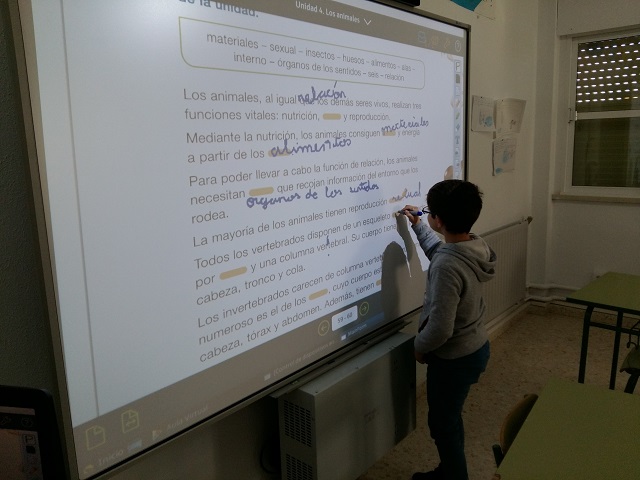 de la unidad.
Unidad 4. Los animales
materiales – sexual – insectos – huesos – alimentos – alas –
interno – órganos de los sentidos – seis – relación
relación
Los animales, al igual los demás seres vivos, realizan tres
funciones vitales: nutrición, y reproducción.
materiales
Mediante la nutrición, los animales consiguen y energía
a partir de los alimentos
Para poder llevar a cabo la función de relación, los animales
necesitan que recojan información del entorno que los
rodea. organos de los sentidos
La mayoría de los animales tienen reproducción sexual
Todos los vertebrados disponen de un esqueleto
por y una columna vertebral. Su cuerpo tiene
cabeza, tronco y cola.
Los invertebrados carecen de columna
numeroso es el de los , cuyo cuerpo
cabeza, tórax y abdomen. Además, tienen